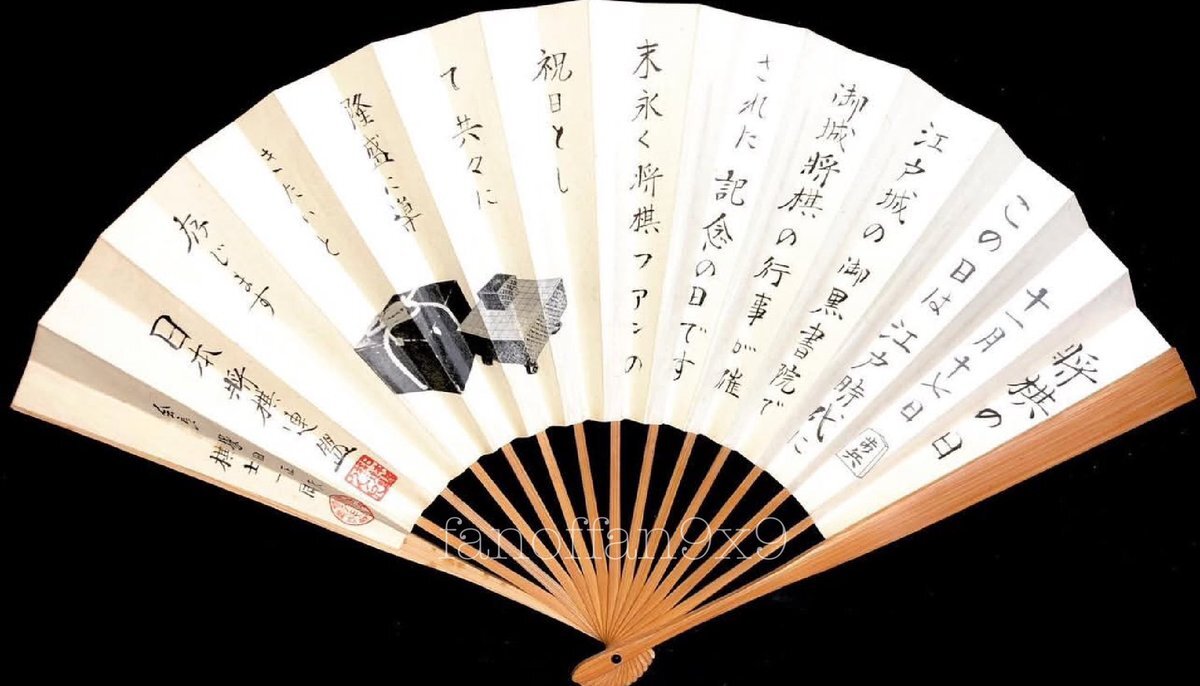 将棋の日
十一月十七日
歩兵
この日は江戸時代に
江戸城の御黒書院で
御城将棋の行事が催
された記念の日です
末永く将棋ファンの
祝日とし
て共々に
隆盛に導
きたいと
存じます
日本将棋連盟
会長
棋士一同
fanoffan9x9